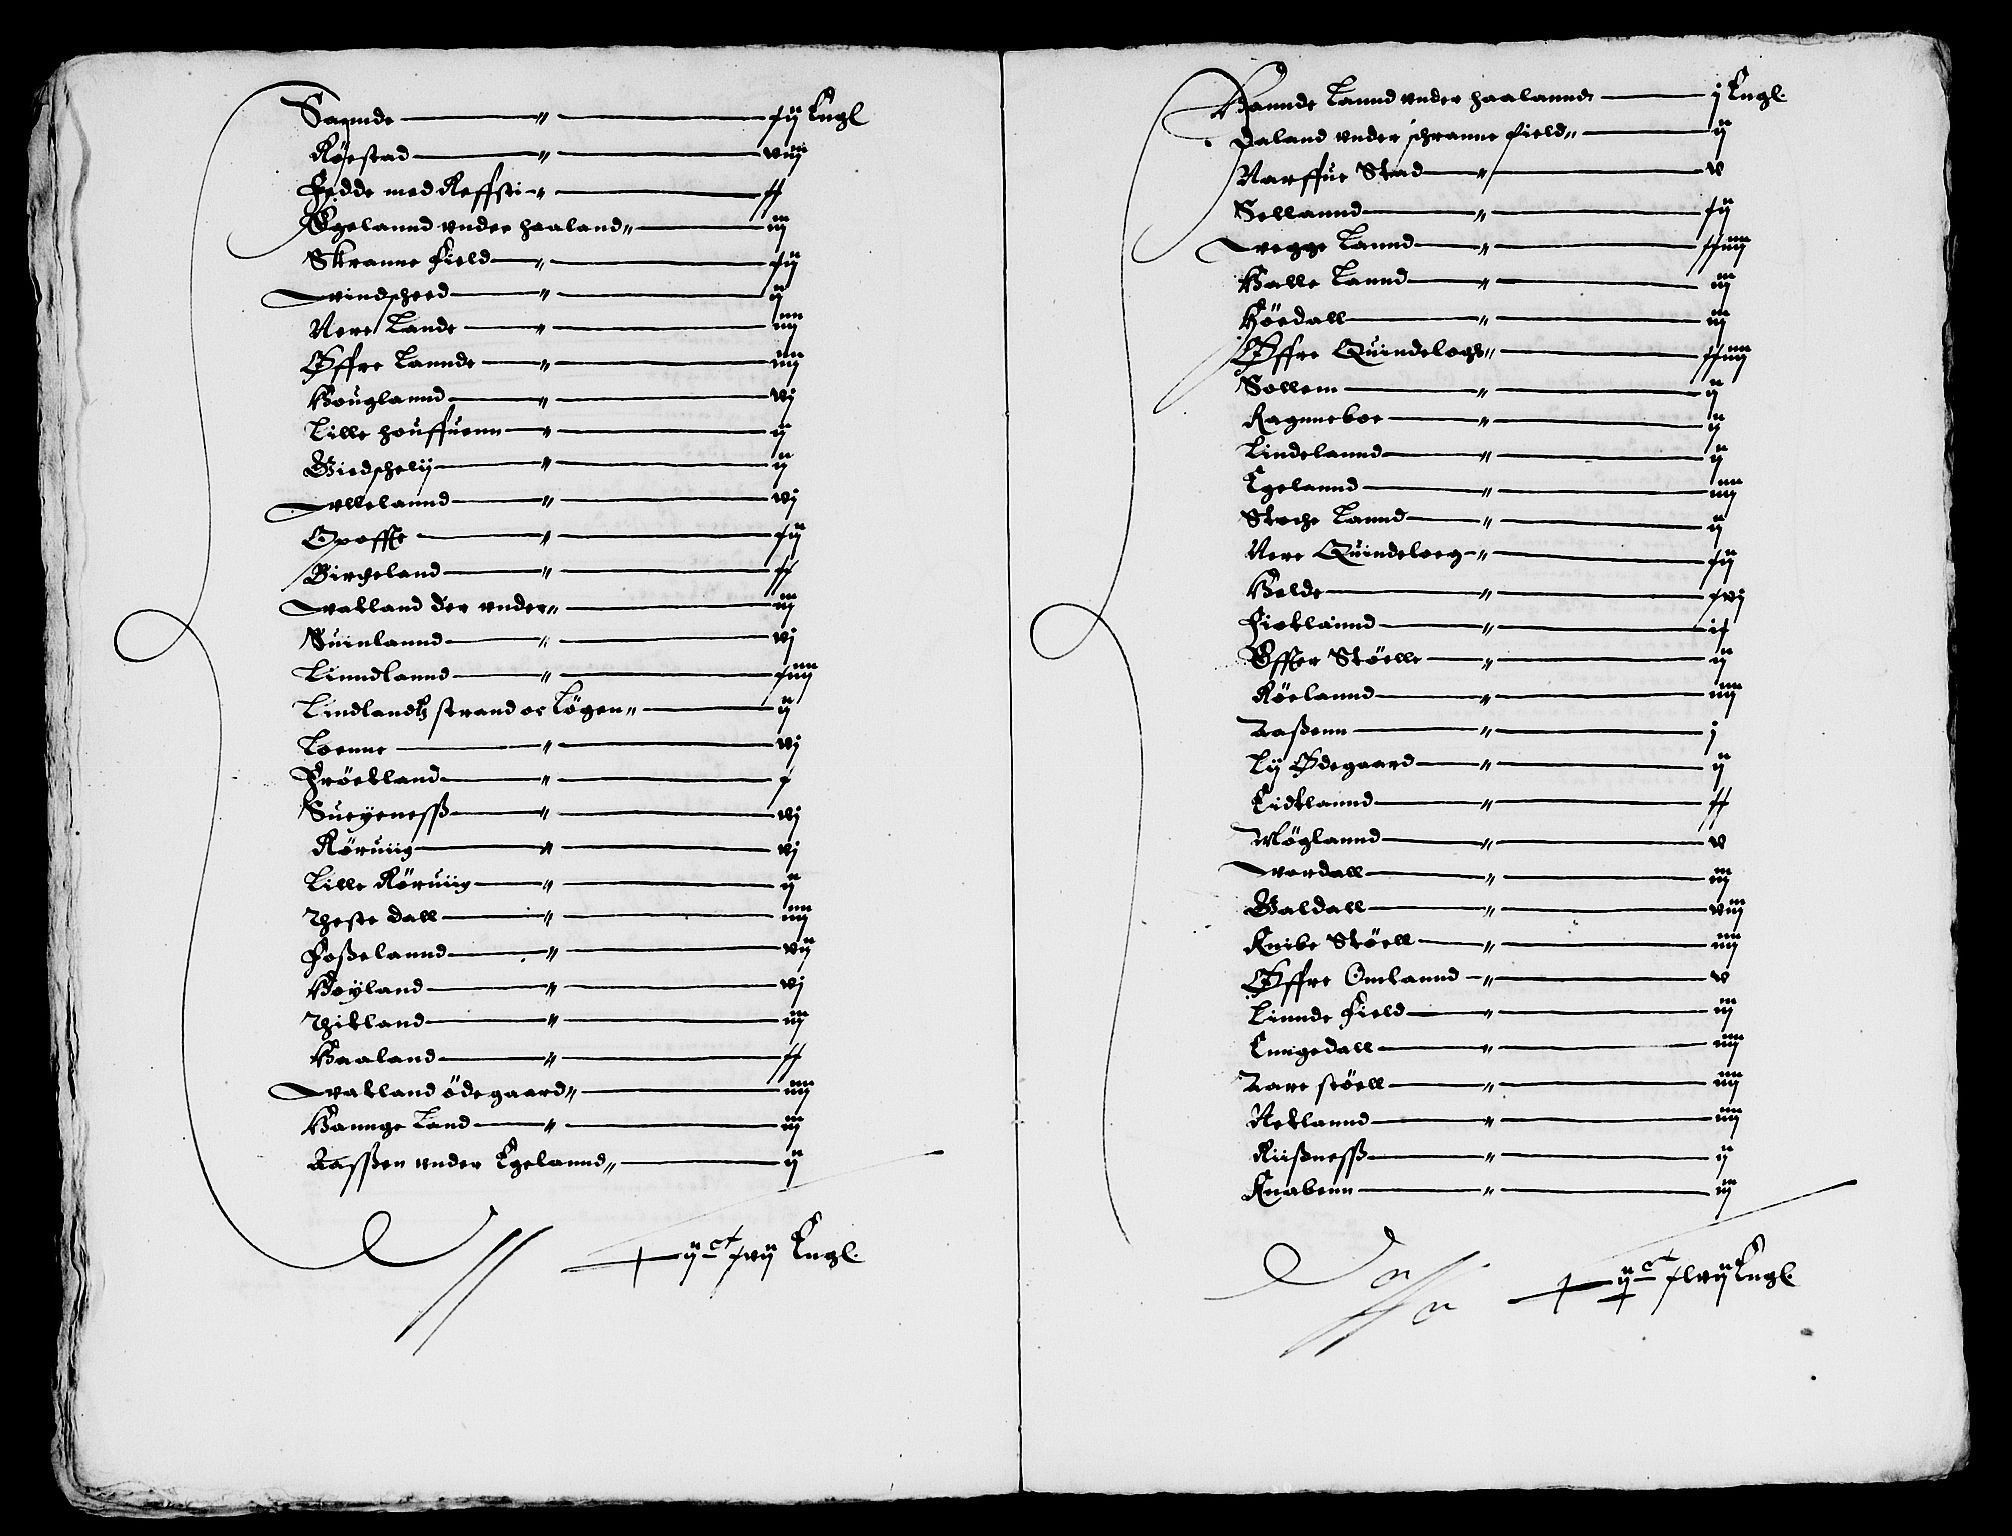 Sagnde — " — xij Engl
Röestad — " — viij
Fedde med Reffsti — " — xx
Egelannd vnder haaland " — iij
Skranne field — " — xij
vindscherd — " — ij
Nere Lande — " — iiij
Øffre Lannde — " — iiij
Houglannd — " — vj
Lille houffuenn — " — ij
Giedschelij — " — ij
vllelannd — " — vj
Opoffte — " — xij
Birckeland — " — xx
vatland der vnder " — iij
Suinlannd — " — vj
Linndlannd — " — xiiij
Lindlandtz strand oc Lögen " — ij
Loenne — " — vj
Fröetland — " — x
Sueyeness — " — vj
Röruiig — " — vj
Lille Röruiig — " — ij
Theste dall — " — iiij
Foßelannd — " — vij
Høyland — " — vj
Thitland — " — iij
Haaland — " — xx
vatland ödegaard " — iiij
Hannge Land — " — iij
Aassen vnder Egelannd " — ij
ij ct xvij Engl.
Hannde Lannd vnder haalannd — j Engl.
Daland vnder schranne field " — ij
Narffue Stad — " — v
Sellannd — " — xij
vegge Lannd — " — xxiiij
Halle Lannd — " — iij
Höedall — " — iij
Øffre Quindeloch " — xxiiij
Sollem — " — ij
Ragnneboe — " — ij
Lindelannd — " — ij
Egelannd — " — iiij
Stoche Lannd — " — ij
Nere Quindeloeg — " — xij
Helde — " — xvj
Fiotlannd — " — ix
Effter Stöelle — " — ij
Röelannd — " — iiij
Aaßenn — " — j
Lij Ødegaard — " — ij
Eidtlannd — " — xx
Möglannd — " — v
vordall — " — iij
Galdall — " — viij
Knibe Stöell — " — iiij
Øffre Omlannd — " — v
Linnde field — " — iij
Eningedall — " — iiij
Aare stöell — " — iiij
Netlannd — " — iiij
Riißness — " — ij
Knabenn — " — iij
ij ct xlvij Engl.